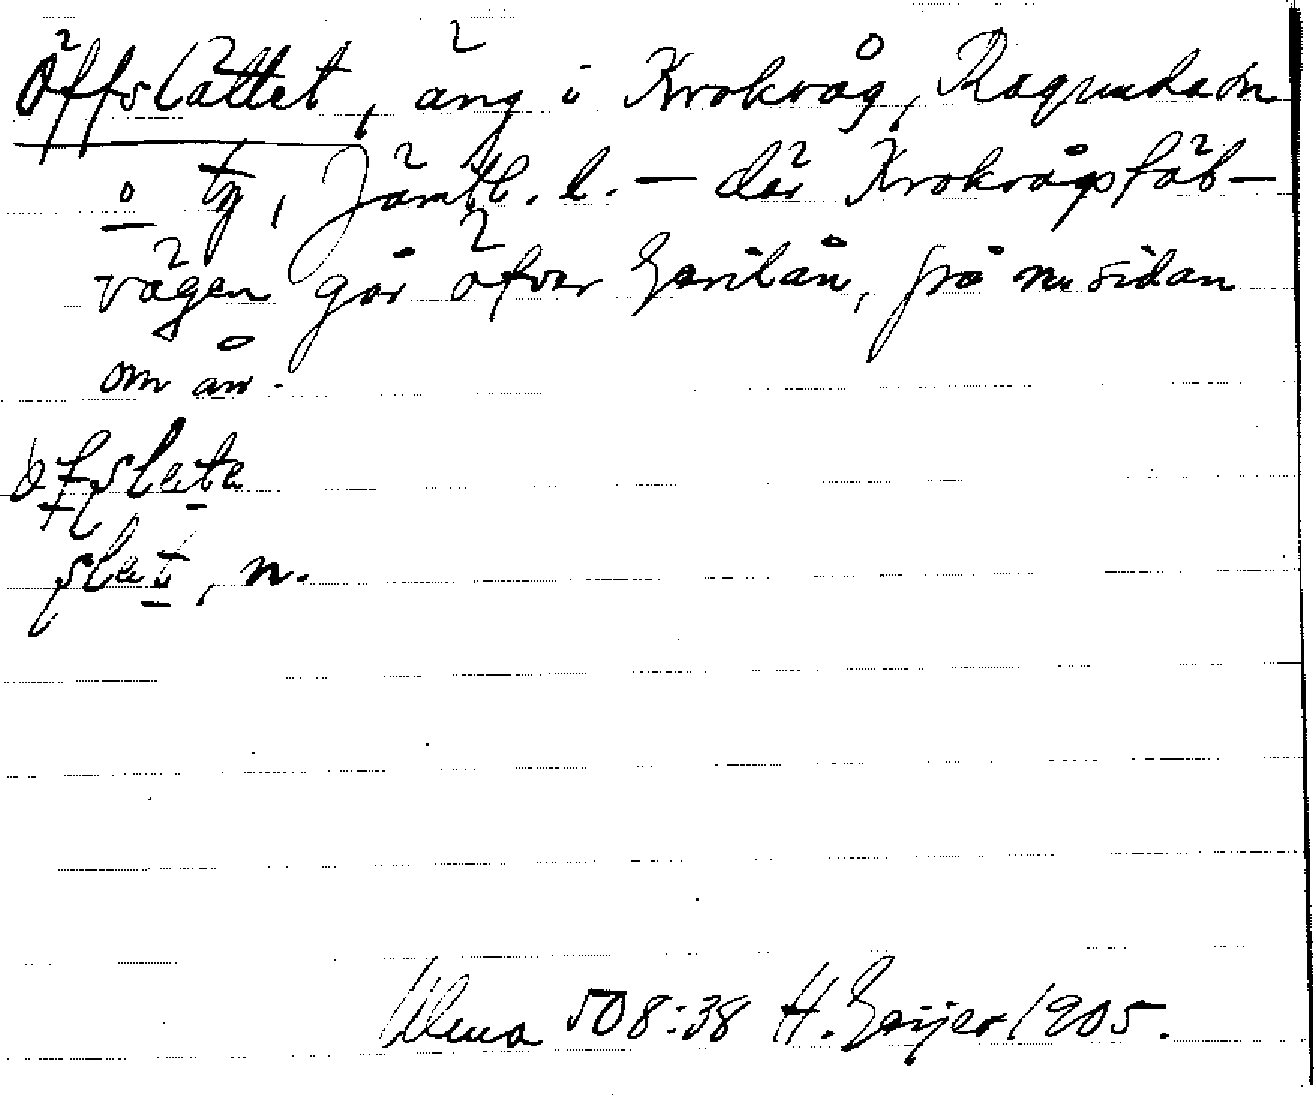 Öffslättet, äng i Krokvåg, Ragunda sn
o tg, Jämtl. l. — där Krokvågsfäb-
vägen går öfver Gerilån, på n. sidan
om ån.
slåt, n.
Ulma 508:38 H. Geijer 1905.